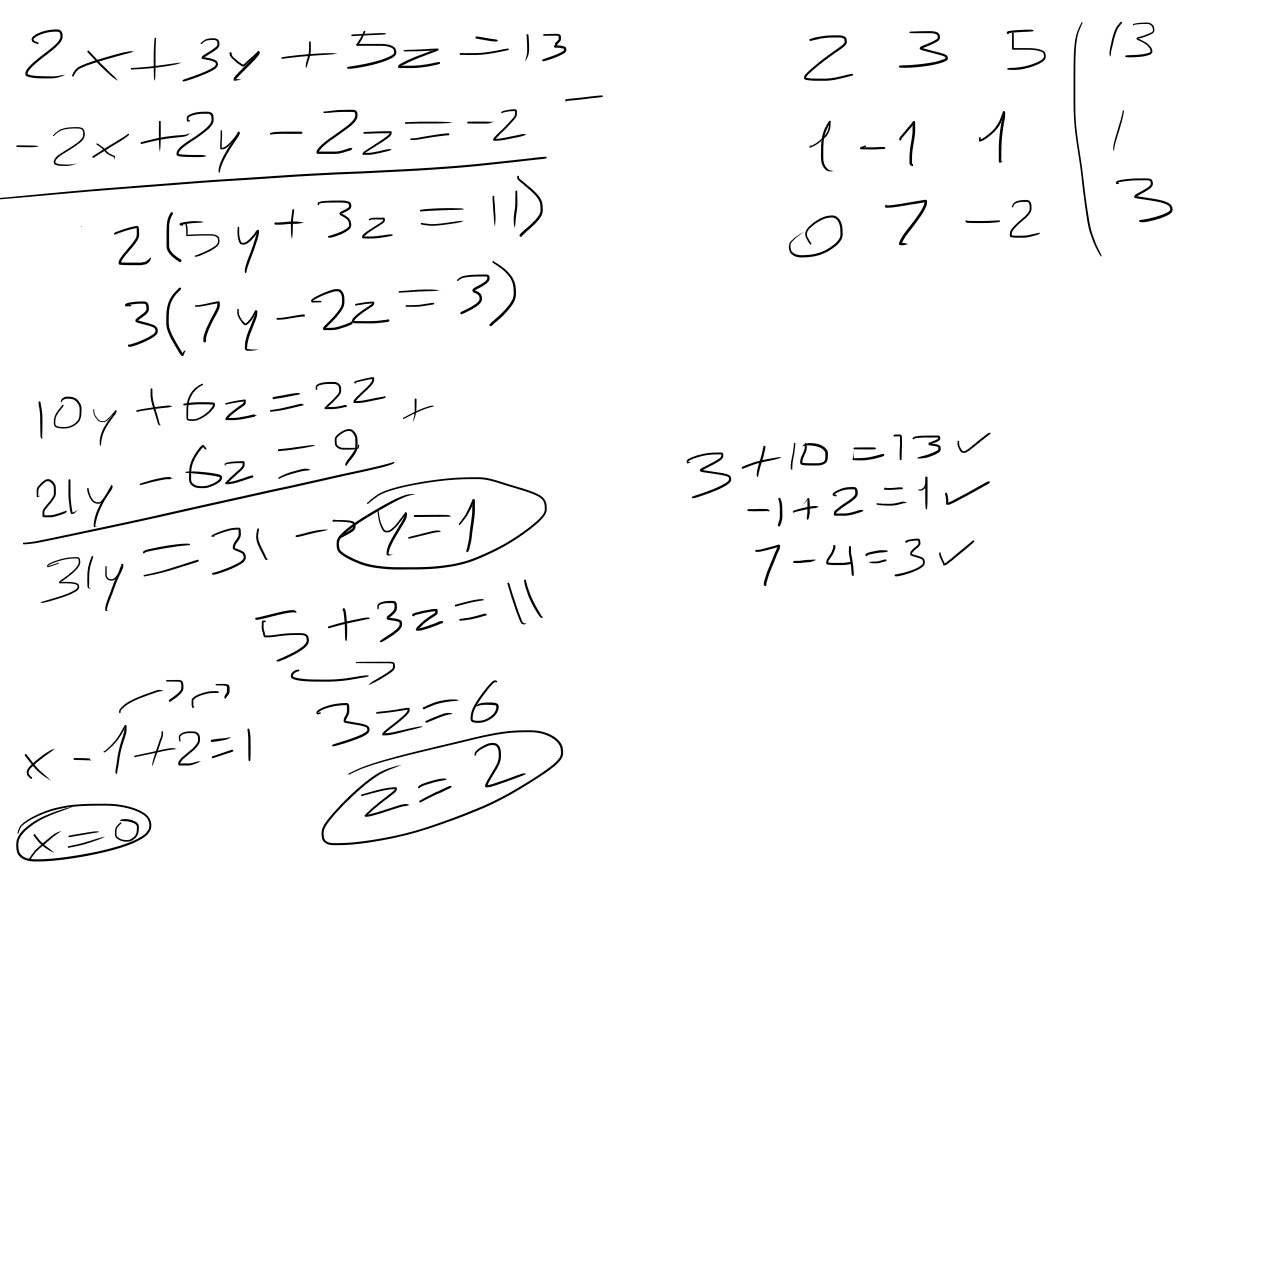 2x+3y+5z=13
-2x+2y-2z=-2 -
2(5y+3z=11)
3(7y-2z=3)
10y+6z=22 +
21y-6z=9
31y=31 → y=1
5+3z=11
3z=6
z=2
x-1+2=1
x=0
2 3 5 | 13
1 -1 1 | 1
0 7 -2 | 3
3+10=13✓
-1+2=1✓
7-4=3✓